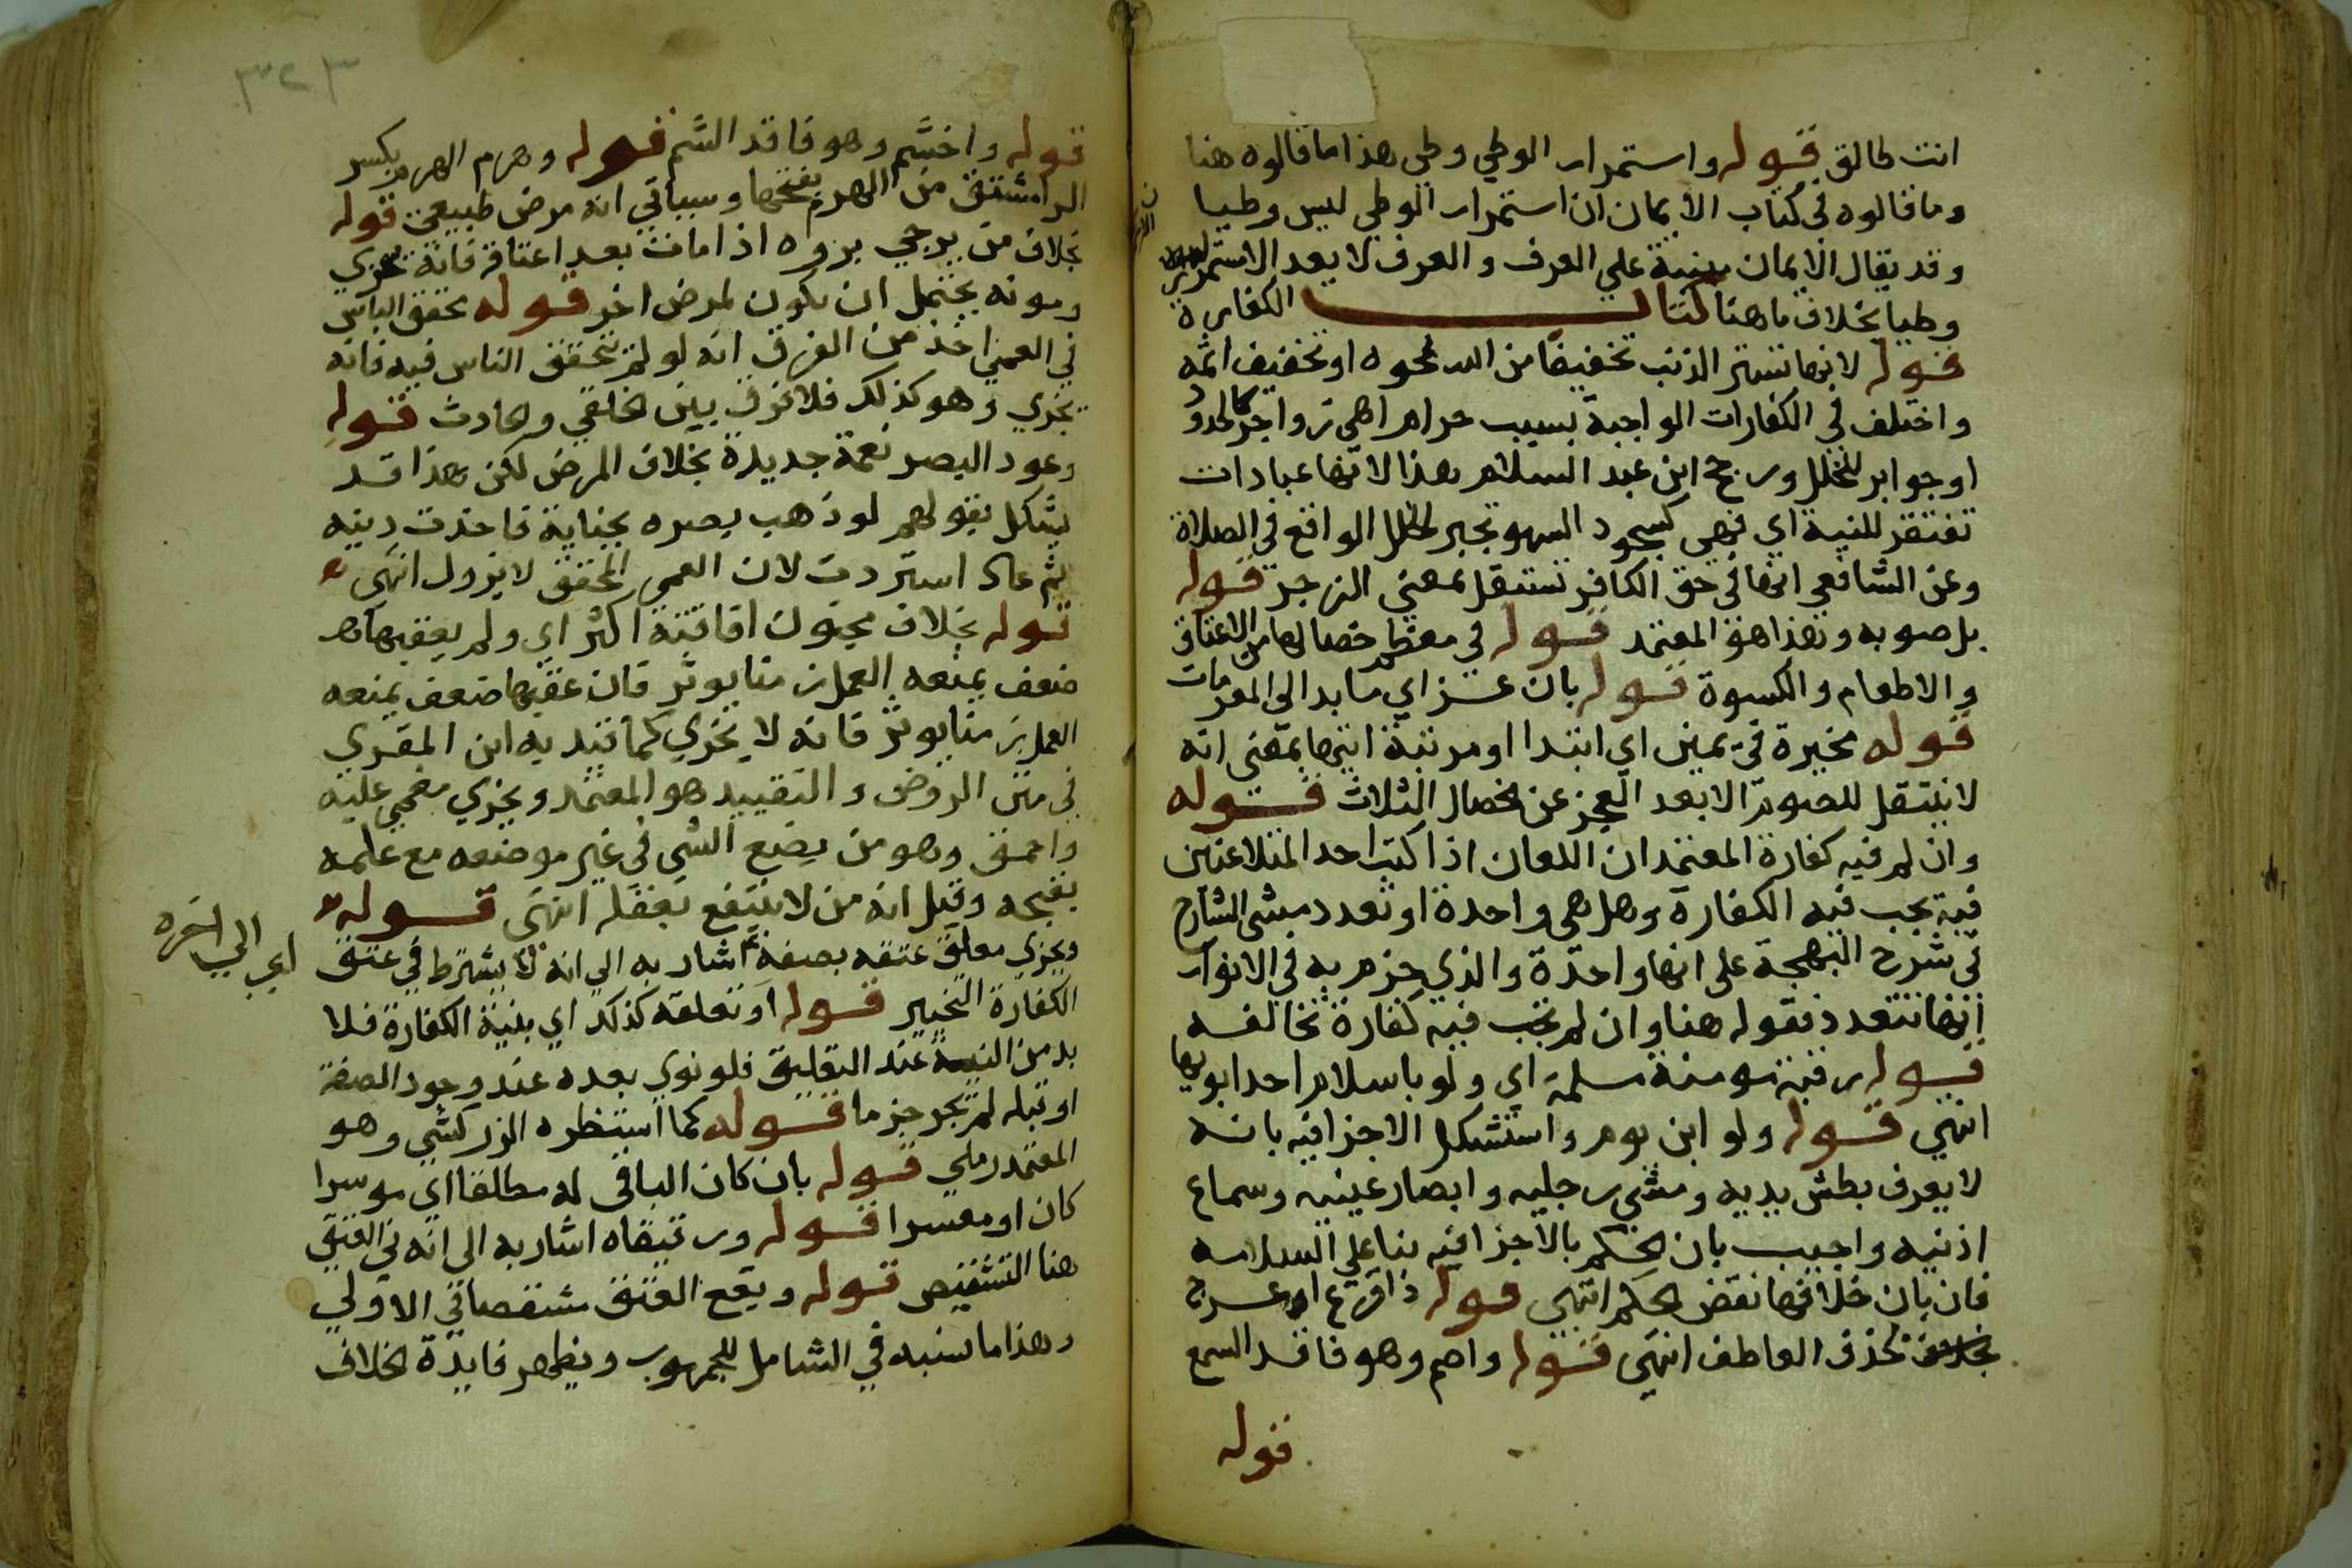 انت طالق قوله واستمرار الوطي وطي هذا ما قالوه هنا
وما قالوه في كتاب الايمان ان استمرار الوطي ليس وطيا
وقد يقال الايمان مبنية علي العرف والعرف لا يعد الاستمرار
وطيا بخلاف ما هنا كتاب الكفارة
قوله لانها تستر الذنب تخفيفا من الله بمحوه او تخفيف اثمه
واختلف في الكفارات الواجبة بسبب حرام اهي زواجر كالحدود
او جوابر للخلل ورجح ابن عبد السلام هذا لانها عبادات
تفتقر للنية اي فهي كسجود السهو تجبر الخلل الواقع في الصلاة
وعن الشافعي انها في حق الكافر تستقل بمعني الزجر قوله
بل صوبه وهذا هو المعتمد قوله في معظم خصالها من الاعتاق
والاطعام والكسوة قوله بان عزاي ما بدا الي المقدمات
قوله مخيرة في يمين اي ابتدا او مرتبة انتها بمعني انه
لا ينتقل للصوم الا بعد العجز عن الخصال الثلاث قوله
وان لم فيه كفارة المعتمد ان اللعان اذا كذب احد المتلاعنين
فيه تجب فيه الكفارة وهل هي واحدة او تعدد مشي الشارح
في شرح البهجة علي انها واحدة والذي جزم به في الانوار
انها تتعدد فقوله هنا وان لم تجب فيه كفارة تخالفه
قوله رقبة مومنة مسلمة اي ولو باسلام احد ابويها
انتهي قوله ولو ابن يوم واستشكل الاجزا فيه بانه
لا يعرف بطش يديه ومشي رجليه وابصار عينيه وسماع
اذنيه واجيب بان الحكم بالاجزا فيه بنا علي السلامه
فان بان خلافها نقض الحكم انتهي قوله ذا اقرع اعرج
بحذف العاطف انتهي قوله واصم وهو فاقد السمع
قوله
٣٢٣
قوله واخشم وهو فاقد الشم قوله وهرم الهرم بكسر
الرا مشتق من الهرم بفتحها وسياتي انه مرض طبيعي قوله
بخلاف من يرجي بروه اذا مات بعد اعتاقه فانه يجزي
وموته يحتمل ان يكون لمرض اخر قوله تحقق الياس
في العمي اخذ من الفرق انه لو لم يتحقق الياس فيه فانه
يجزي وهو كذلك فلا فرق بين الخلقي والحادث قوله
وعود البصر نعمة جديدة بخلاف المرض لكن هذا قد
يشكل بقولهم لو ذهب بصره بجناية فاخذت ديته
ثم عاد استردت لان العمي المحقق لا يزول انتهي
قوله بخلاف مجنون افاقته اكثر اي ولم يعقبها
ضعف يمنعه العمل زمنا يوثر فان عقبها ضعف يمنعه
العمل زمنا يوثر فانه لا يجزي كما قيد به ابن المقري
في متن الروض والتقييد هو المعتمد ويجزي مغمي عليه
واحمق وهو من يضع الشي في غير موضعه مع علمه
بقبحه وقيل انه من لا ينتفع بعقله انتهي قوله
ويجزي معلق عتقه بصفة اشار به الي انه لا يشترط في عتق
اي الي اخره
الكفارة التخيير قوله او تعلقه كذلك اي بنية الكفارة فلا
بد من النية عند التعليق فلو نوي بعده عند وجود الصفة
او قبله لم يجز جزما قوله كما استظره الزركشي وهو
المعتمد رملي قوله بان كان الباقي له مطلقا اي موسرا
كان او معسرا قوله ورقيقاه اشار به الي انه في العتق
هنا التشقيص قوله ويقع العتق مشقصا في الاولي
وهذا ما نسبه في الشامل للجمهور ويظهر فايدة الخلاف